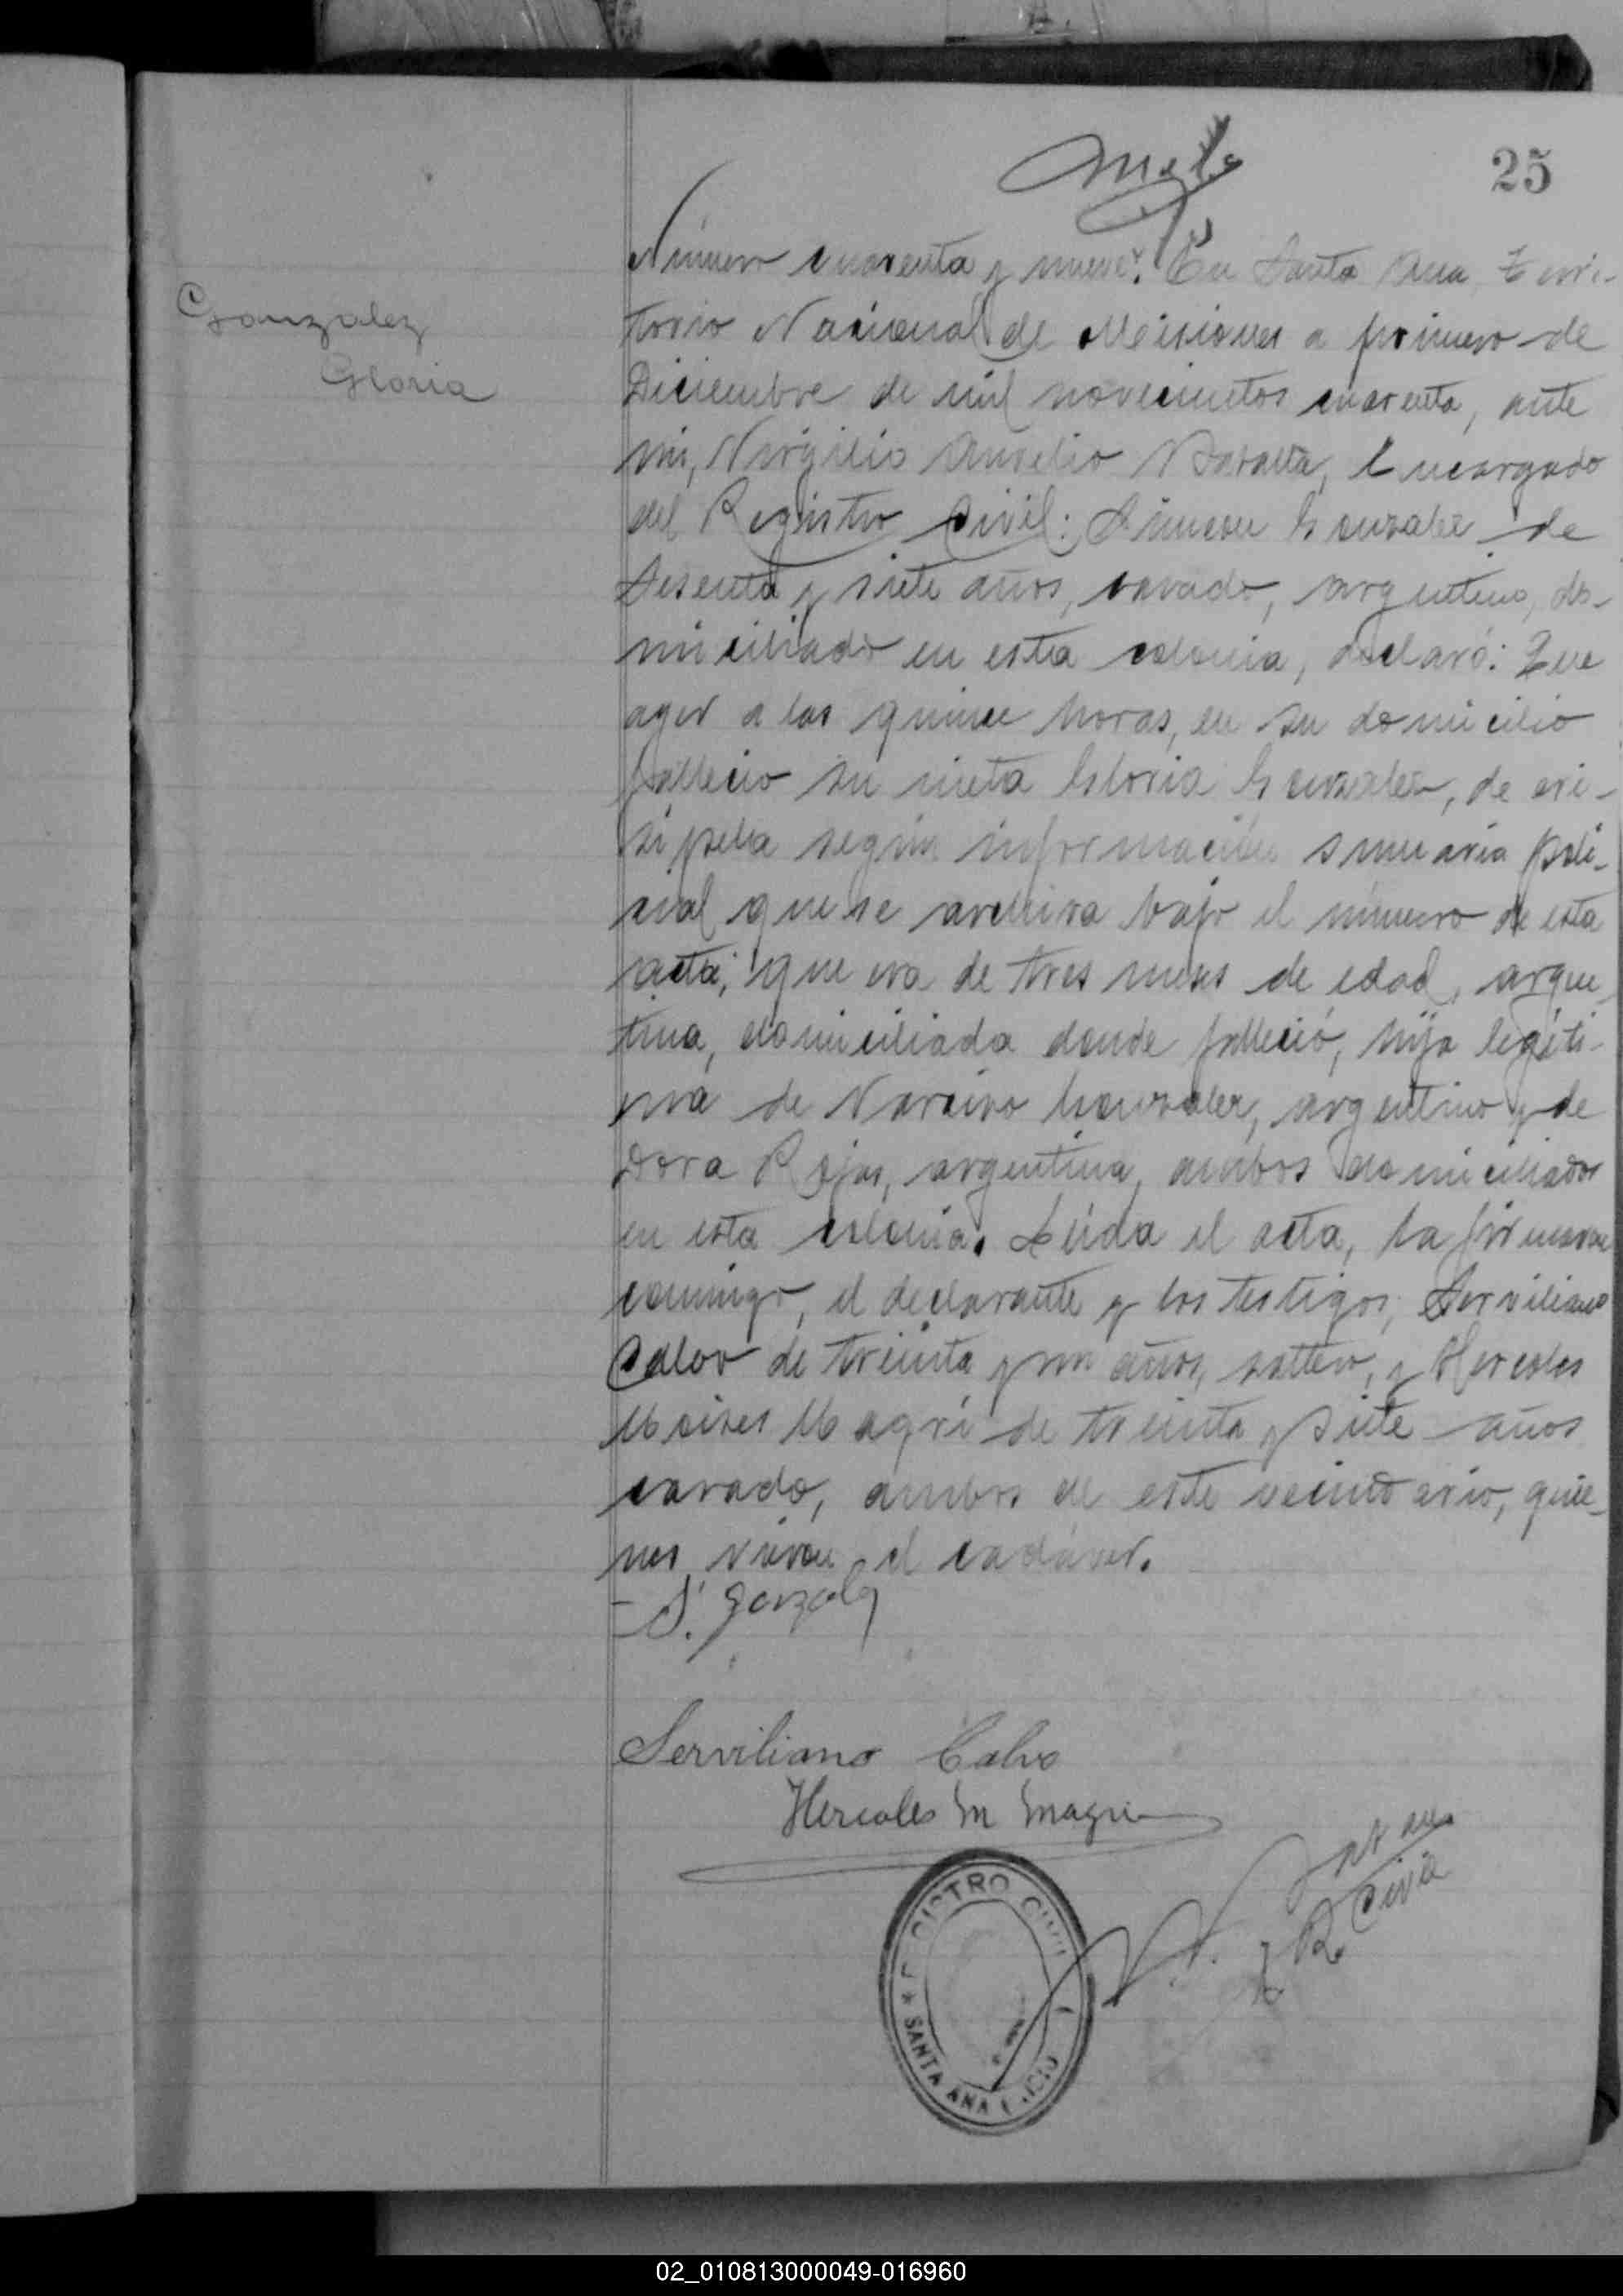 25
Número cuarenta y nueve. En Santa Ana, Terri-
torio Nacional de Misiones a primero de
Diciembre de mil novecientos cuarenta, ante
mi, Virgilio Aurelio, Encargado
del Registro Civil: Simeon Gonzalez de
sesenta y siete años, casado, argentino, do-
miciliado en esta colonia, declaró: Que
ayer a las quince horas, en su domicilio
falleció su nieta Gloria Gonzalez, de eri-
sipela según información sumaria poli-
cial que se archiva bajo el número de esta
acta; que era de tres meses de edad, argen
tina, domiciliada donde falleció, hija legíti-
ma de Narciso Gonzalez, argentino y de
Dora Rojas, argentina, ambos domiciliados
en esta colonia. Leida el acta, la firmaron
conmigo, el declarante y los testigos, Serviliano
Calvo de treinta y un años, soltero, y Hercoles
Moises Magri de treinta y siete años
casado, ambos de este vecindario, quie-
nes vieron el cadáver.
Gonzalez
Gloria
S. Gonzalez
Serviliano Calvo
Hercoles M Magri
R. Civil
REGISTRO CIVIL
* SANTA ANA
02_010813000049-016960